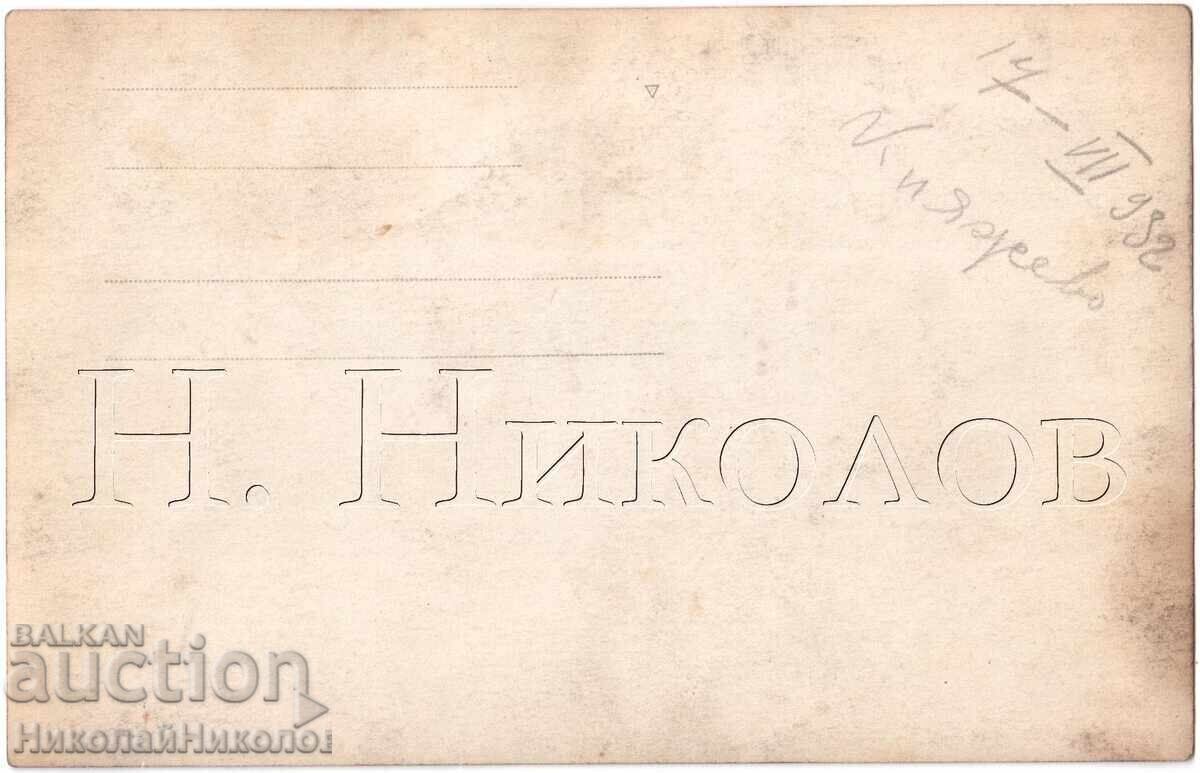 17–VIII 932
Княжево
Н. Николов
BALKAN
auction
НиколайНиколов